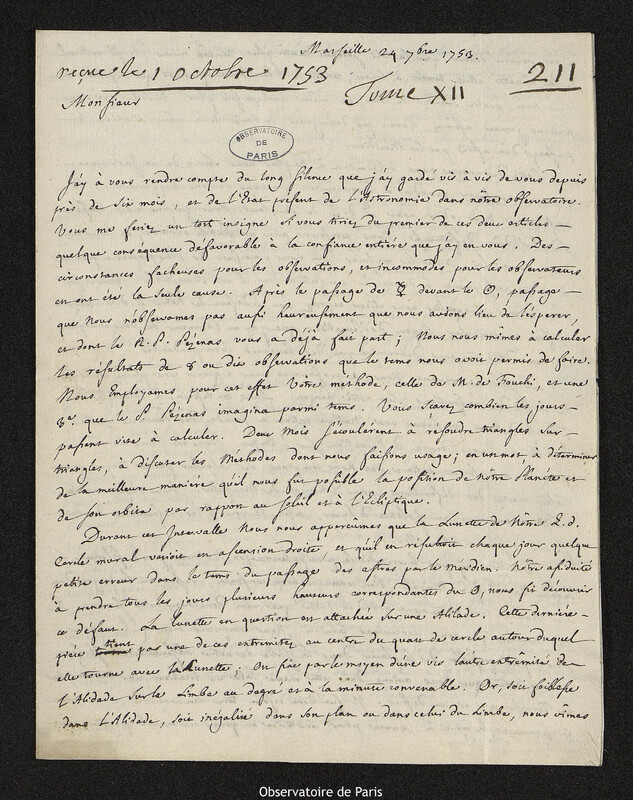 Marseille 24 7bre 1753.
reçue le 1 octobre 1753
211
Tome XII
Monsieur
OBSERVATOIRE
DE
PARIS
J'ay à vous rendre compte du long silence que j'ay gardé vis à vis de vous depuis
près de six mois, et de l'Etat présent de l'Astronomie dans nôtre observatoire.
Vous me feriez un tort insigne si vous tiriez du premier de ces deux articles
quelque conséquence défavorable à la confiance entière que j'ay en vous. Des
circonstances facheuses pour les observations, et incommodes pour les observateurs
en ont été la seule cause. Après le passage de ☿ devant le ☉, passage
que nous n'observames pas aussi heureusement que nous avions lieu de l'espérer,
et dont le R. P. Pézenas vous a déjà fait part; Nous nous mîmes à calculer
les résultats de 8 ou dix observations que le tems nous avoit permis de faire.
Nous Employames pour cet effet Votre méthode, celle de M. de Fouchi, et une
3e. que le P. Pézenas imagina parmi tems. Vous scavez combien les jours
passent vite à calculer. Deux Mois s'écoulérent à résoudre triangles sur
triangles, à discuter les Methodes dont nous faisions usage; en un mot, à déterminer
de la meilleure maniere qu'il nous fut possible la position de nôtre Planéte et
de son orbite par rapport au Soleil et à l'Ecliptique.
Durant cet Intervalle Nous nous apperçûmes que la Lunette de Nôtre Q. d.
Cercle mural varioit en ascension droite, et qu'il en résultoit chaque jour quelque
petite erreur dans le tems du passage des astres par le meridien. Nôtre assiduité
à prendre tous les jours plusieurs hauteurs correspondantes du ☉, nous fit découvrir
ce défaut. La lunette en question est attachée sur une Alidade. Cette dernière
pièce tient par une de ces extremitez au centre du quart de cercle autour duquel
elle tourne avec la Lunette; On fixe par le moyen d'une vis l'autre extrêmité de
l'Alidade sur le Limbe au degré et à la minute convenable. Or, soit foiblesse
dans l'Alidade, soit inégalité dans son plan ou dans celui du Limbe, nous vîmes
Observatoire de Paris